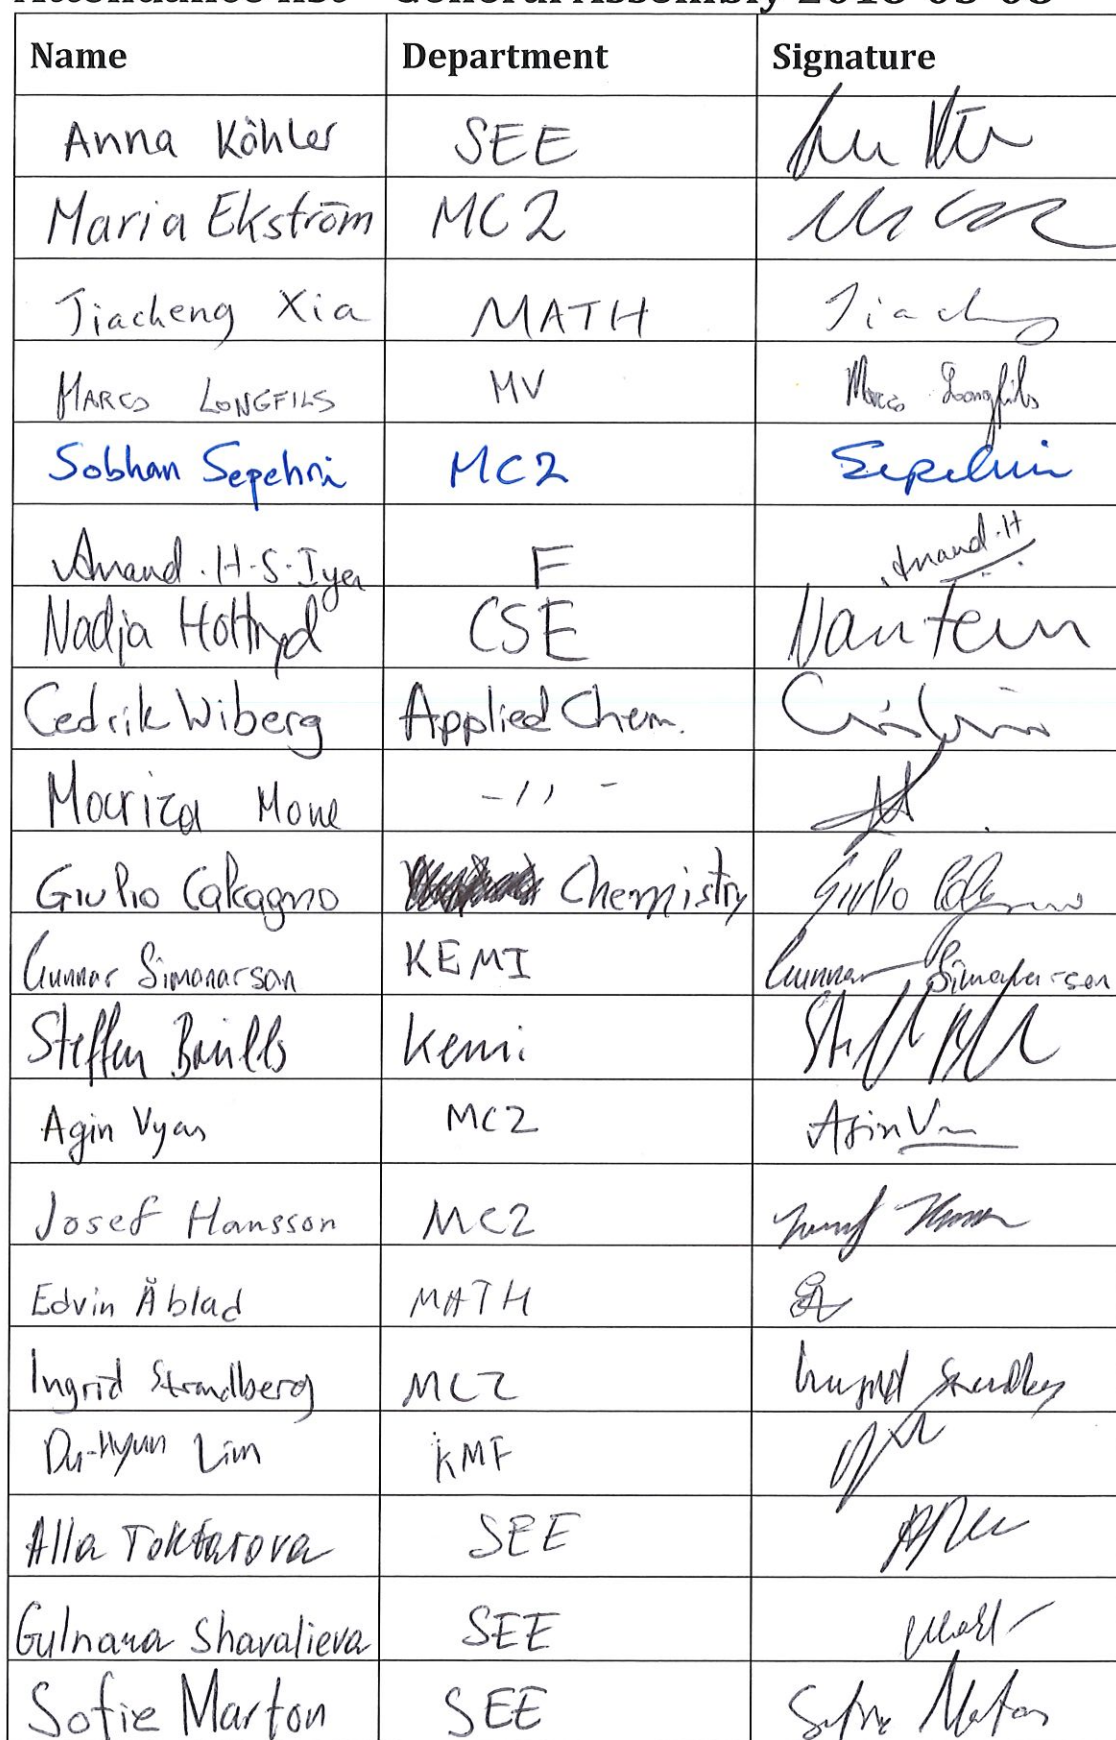 Attendance list - General Assembly 2018-03-08
Name Department Signature
Anna Köhler SEE
Maria Ekström MC2
Jiacheng Xia MATH Jiacheng
MARCO LONGFILS MV Marco Longfils
Sobhan Sepehri MC2 Sepehri
Anand.H.S.Iyer F Anand.H
Nadja Holtryd CSE
Cedrik Wiberg Applied Chem.
Mariza Mone -11-
Giulio Calcagno Chemistry Giulio
Gunnar Símonarson KEMI Gunnar Símonarson
Steffen Brülls Kemi
Agin Vyas MC2 Agin
Josef Hansson MC2
Edvin Åblad MATH
Ingrid Strandberg MC2 Ingrid Strandberg
Du-Hyun Lim KMF
Alla Toktarova SEE
Gulnara Shavalieva SEE
Sofie Marton SEE Sofie Marton